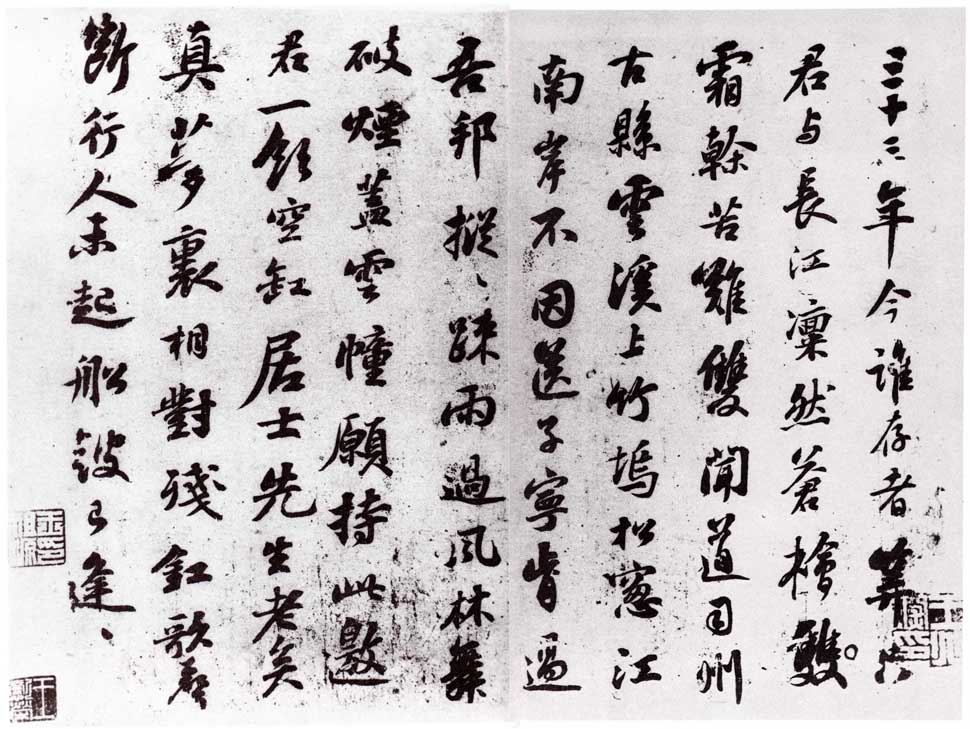 三十三年今誰存者筭只
君与長江凜然蒼檜雙
霜榦苦難雙聞道司州
古縣雲溪上竹塢松窻江
南岸不因送子寧肯過
吾邦摐〻踈雨過風林舞
破煙蓋雲幢願持此邀
君一飲空缸居士先生老矣
真夢裏相對殘釭歌聲
斷行人未起船鼓已逢〻